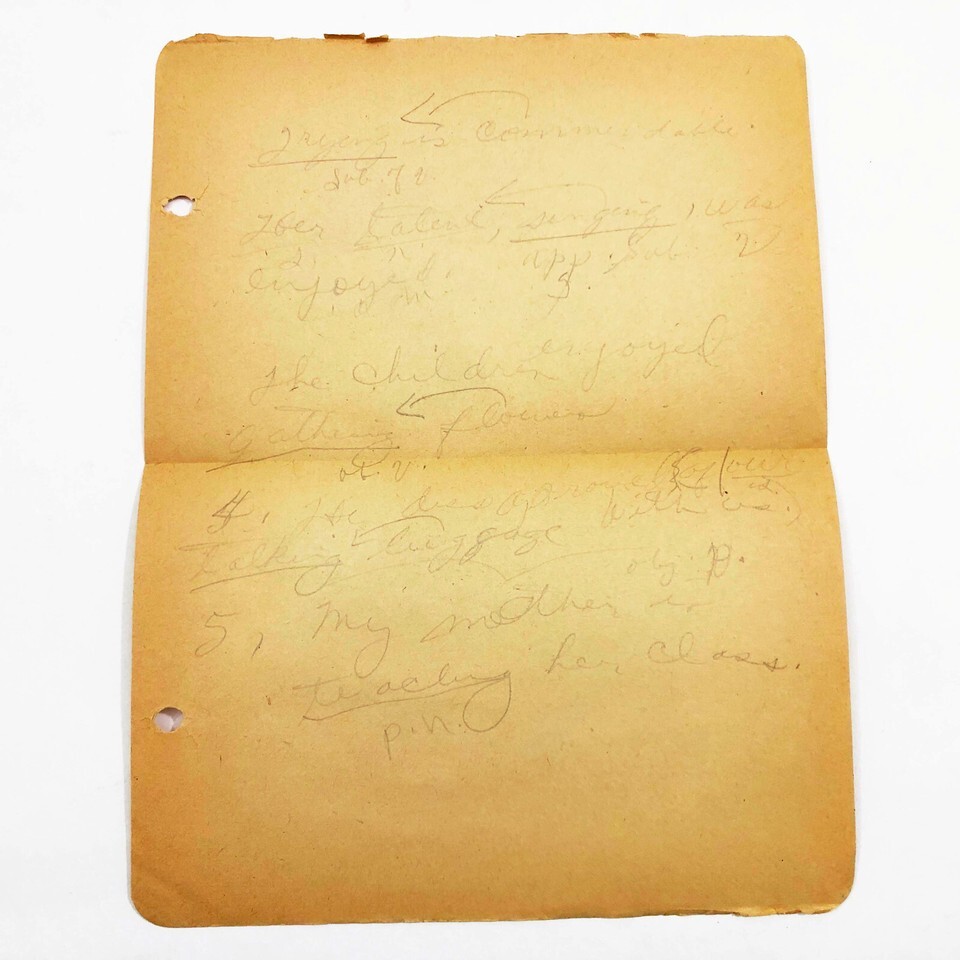 Trying is commendable.
sub. of v.
Her talent, singing, was
app. sub. v.
enjoyed.
The children enjoyed
gathering flowers
ob. v.
4. He disapproved (of our
talking luggage with us.)
obj. p.
5, My mother is
teaching her class.
p.n.